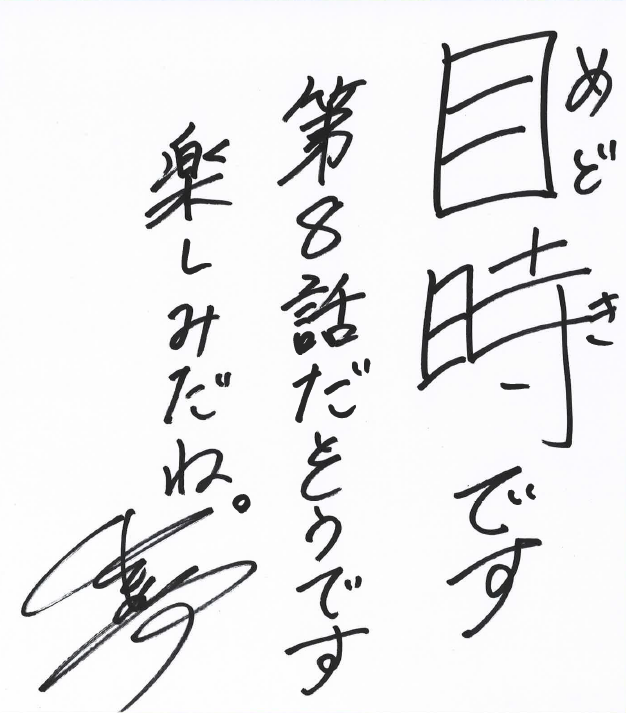 目時です
めどき
第8話だとうです
楽しみだね。